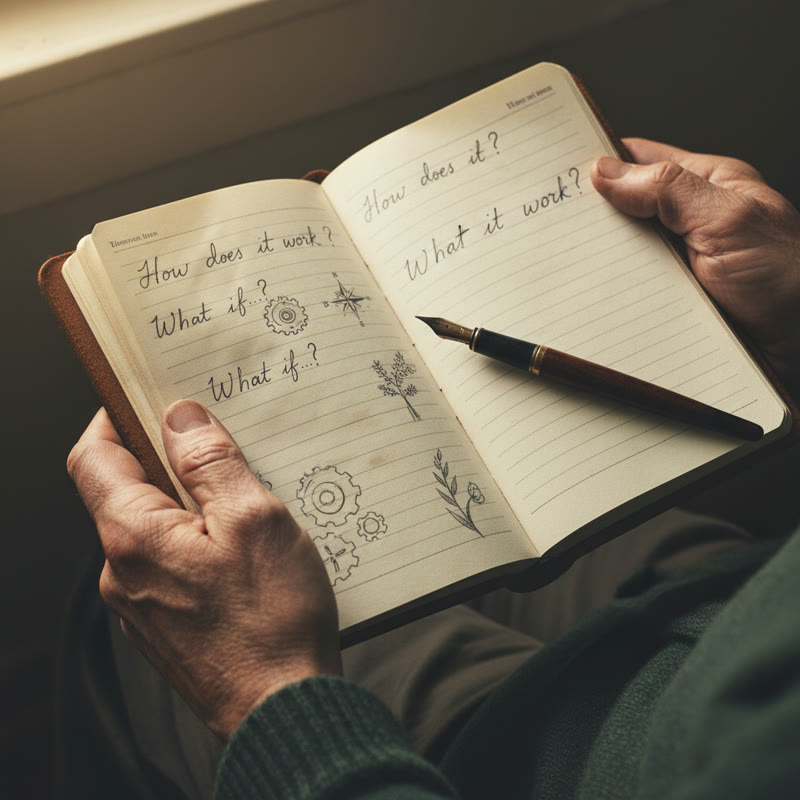 How does it work?
What if...?
What if...?
How does it?
What it work?